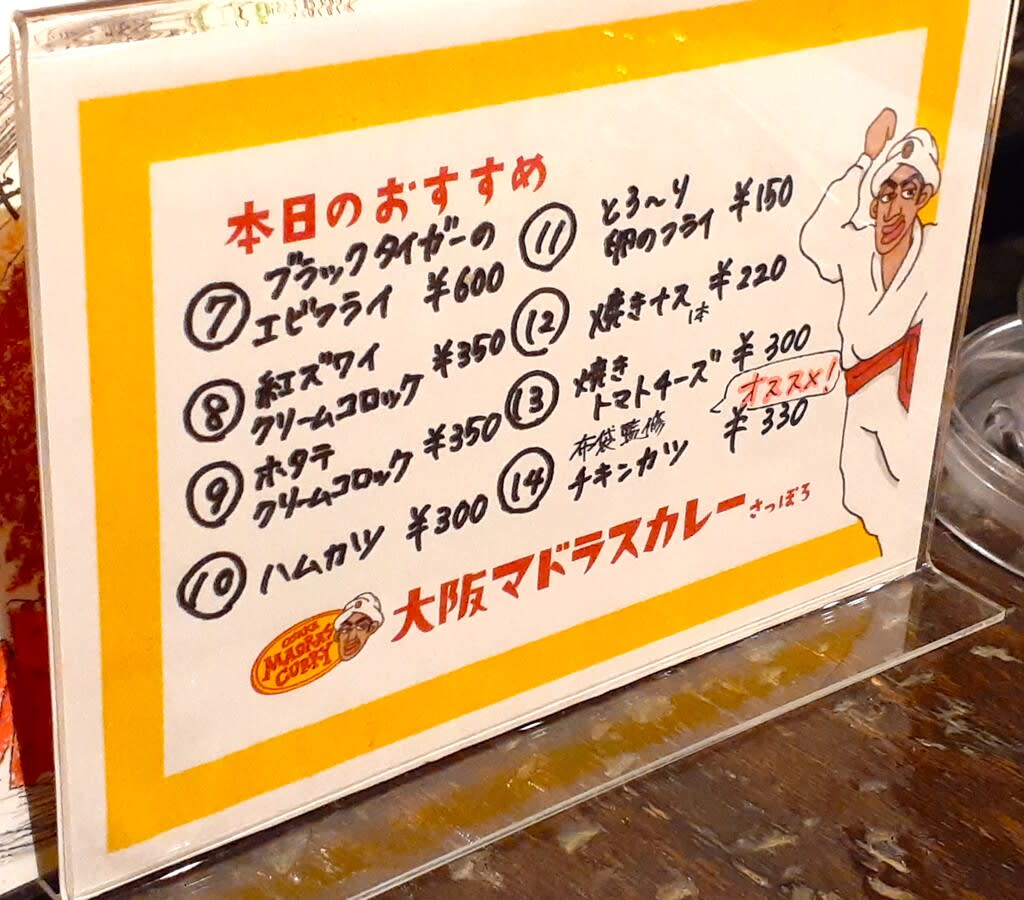 本日のおすすめ
⑦ ブラックタイガーの
エビフライ ¥600
⑧ 紅ズワイ
クリームコロック ¥350
⑨ ホタテ
クリームコロック ¥350
⑩ ハムカツ ¥300
⑪ とろ〜り
卵のフライ ¥150
⑫ 焼きナス 1本 ¥220
⑬ 焼き
トマトチーズ ¥300
オススメ!
⑭ 布袋監修
チキンカツ ¥330
OSAKA
MADRAS
CURRY
大阪マドラスカレーさっぽろ